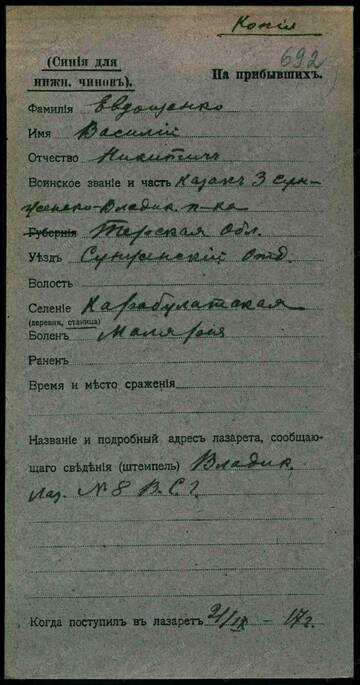 Копія
692
(Синія для
нижн. чиновъ).
На прибывшихъ.
Фамилія Евдощенко
Имя Василій
Отчество Никитичъ
Воинское званіе и часть Казакъ 3 Сун-
женско-Владик. п-ка
Губернія Терская Обл.
Уѣздъ Сунженскій Отд.
Волость
Селеніе Карабулатская
(деревня, станица)
Боленъ Малярія
Раненъ
Время и мѣсто сраженія
Названіе и подробный адресъ лазарета, сообщаю-
щаго свѣдѣнія (штемпель) Владик.
Лаз. № 8 В.С.Г.
Когда поступилъ въ лазаретъ 21/IX – 17 г.